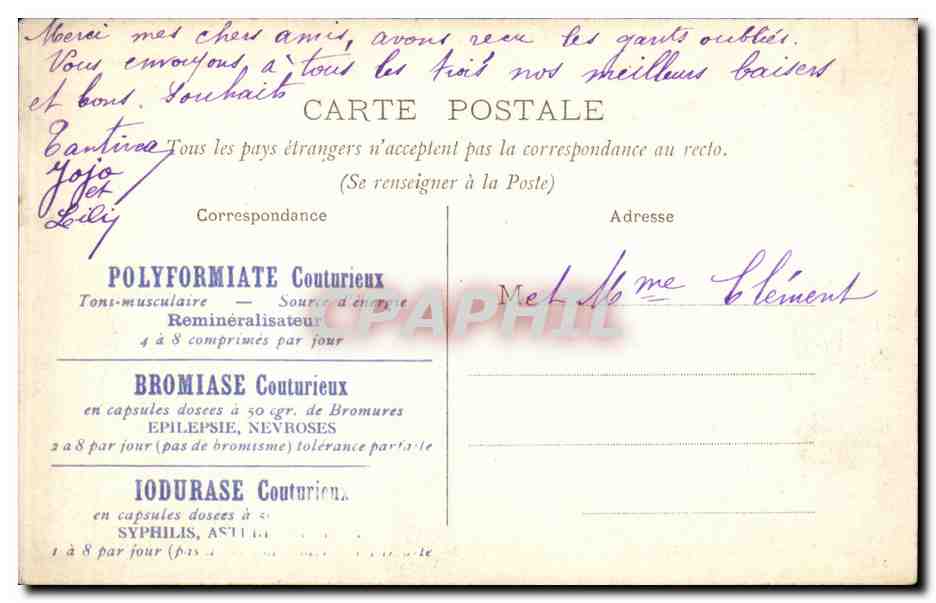 Merci mes chers amis, avons reçu les gants oubliés.
Vous envoyons, à tous les trois nos meilleurs baisers
et bons Souhaits
CARTE POSTALE
Jojo
et
Lili
Tous les pays étrangers n'acceptent pas la correspondance au recto.
(Se renseigner à la Poste)
Correspondance
POLYFORMIATE Couturieux
Tons-musculaire — Source d'énergie
Reminéralisateur
4 à 8 comprimés par jour
BROMIASE Couturieux
en capsules dosees à 50 cgr. de Bromures
EPILEPSIE, NEVROSES
2 a 8 par jour (pas de bromisme) tolérance parfaite
IODURASE Couturieux
en capsules dosees à
SYPHILIS,
1 à 8 par jour (pas
Adresse
M et Mme Clément
CPAPHIL